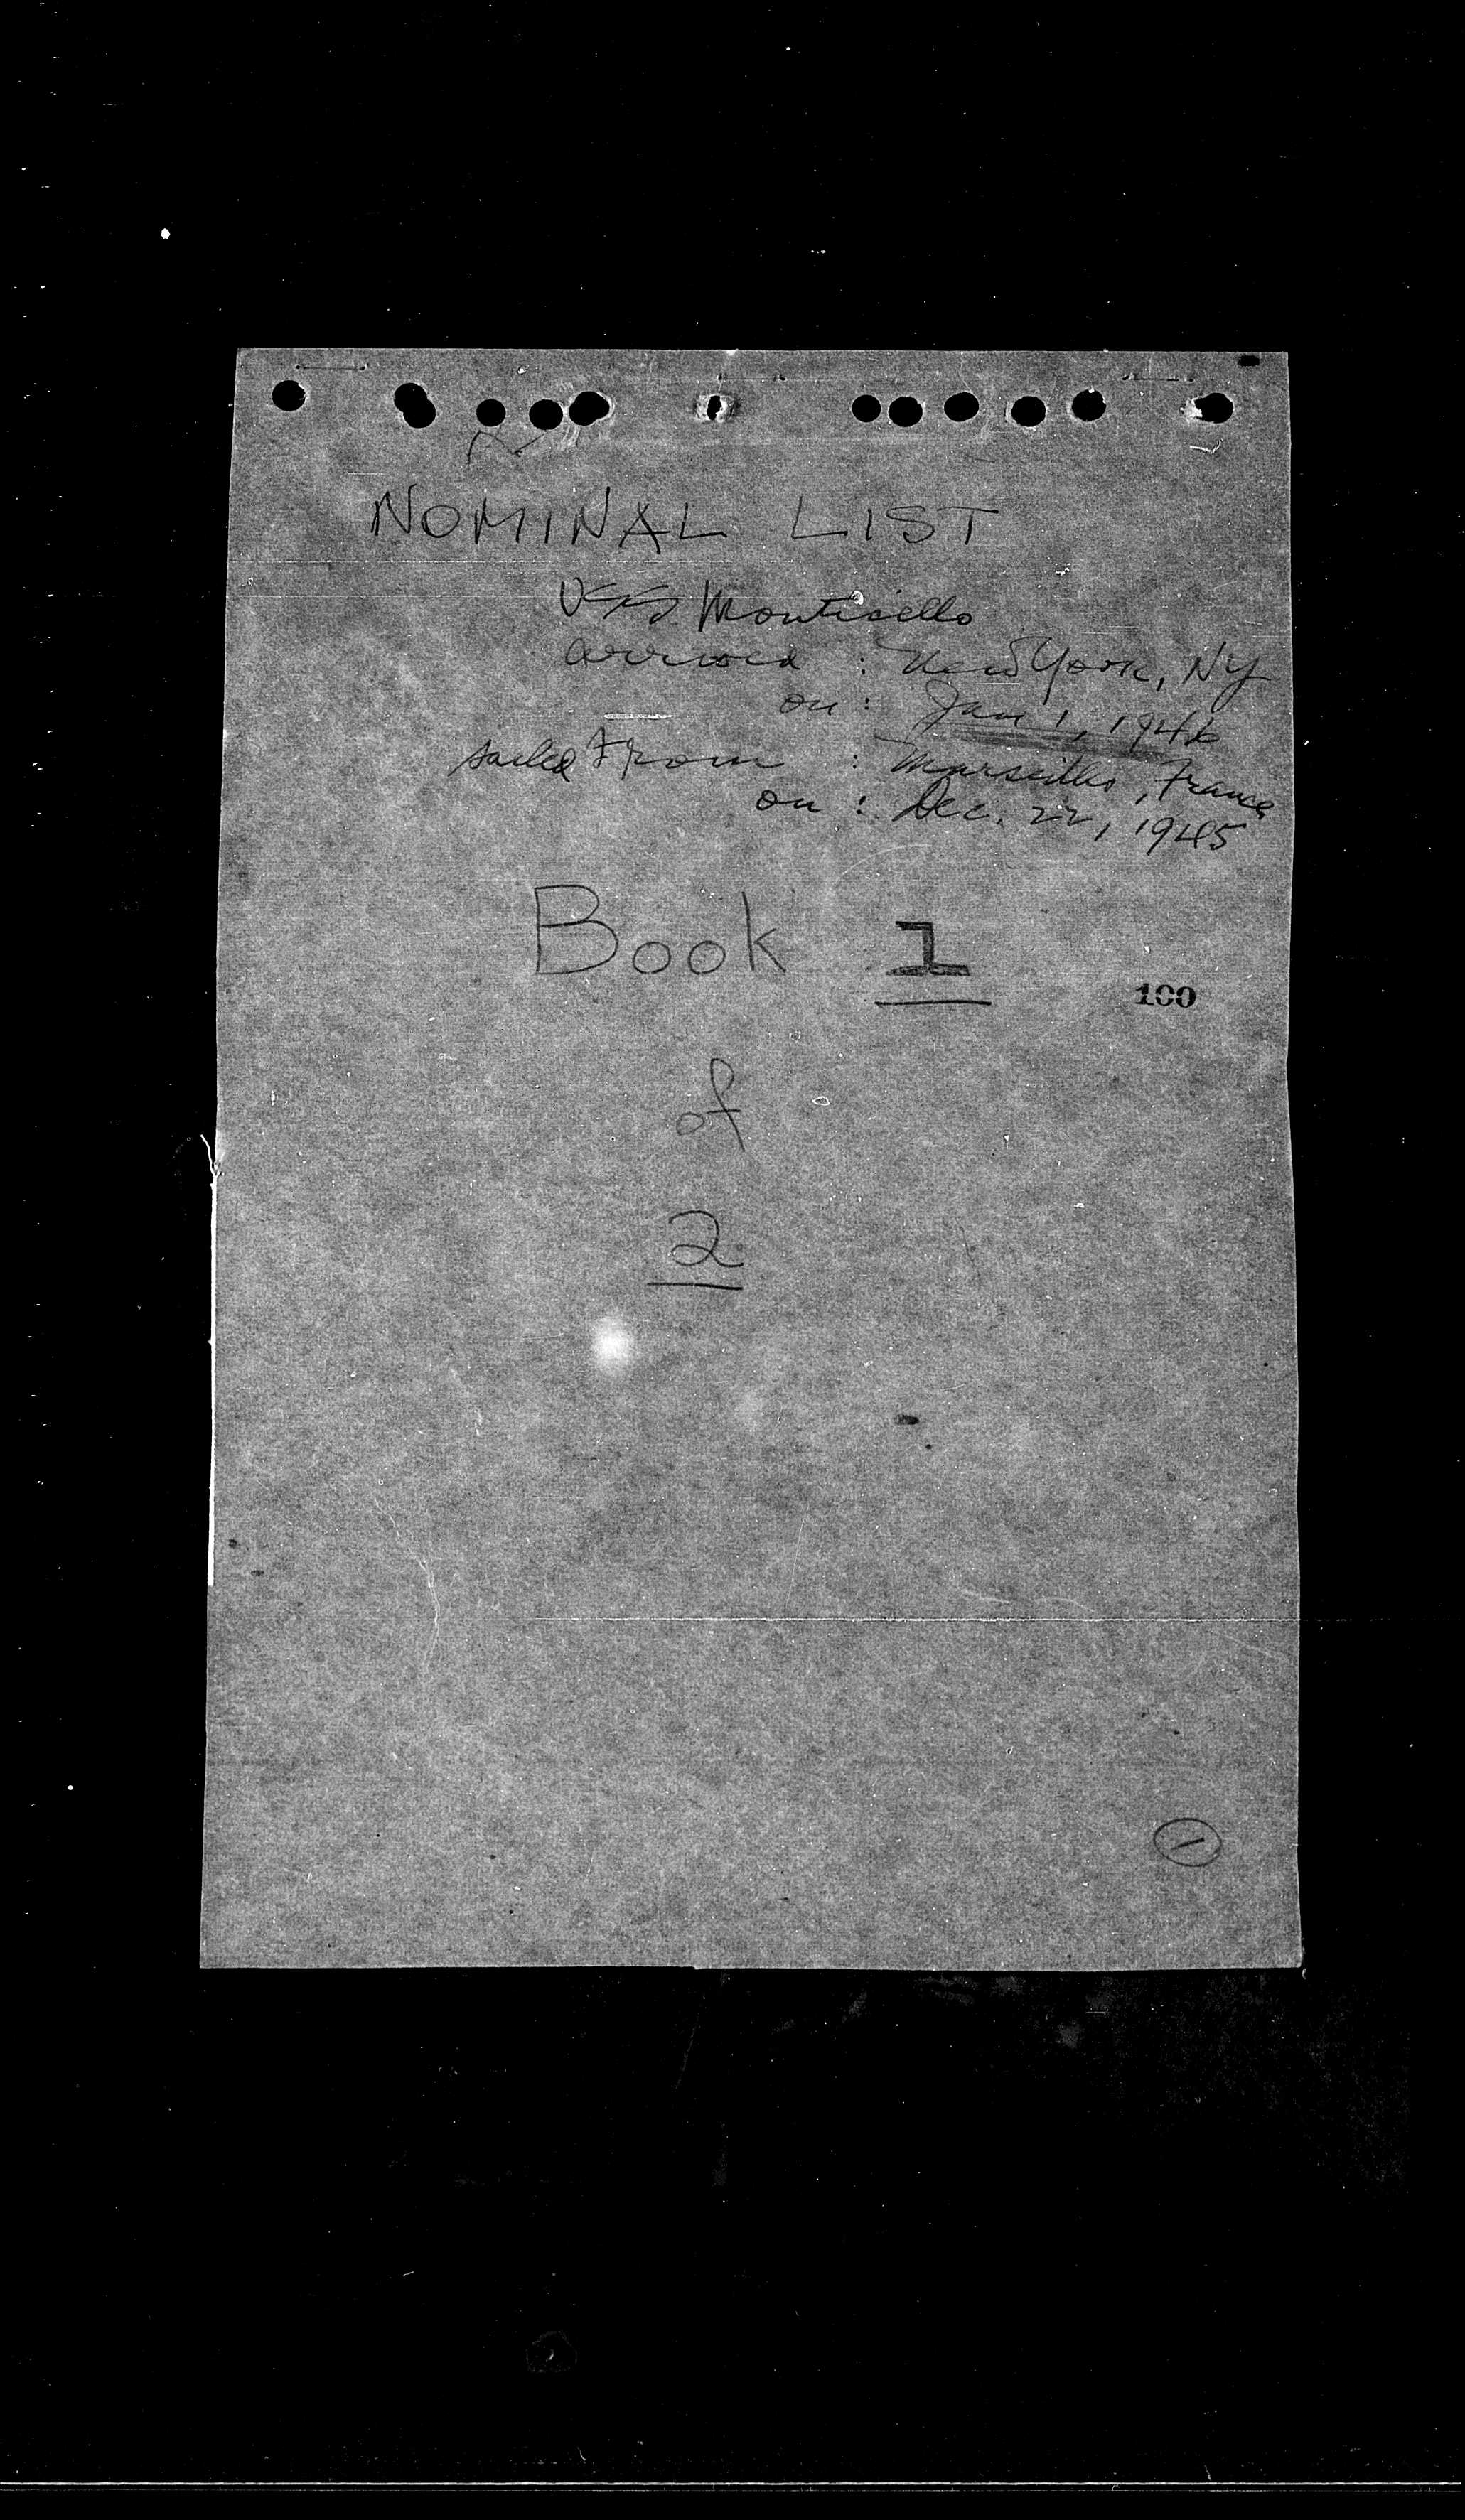 NOMINAL LIST
USS Monticello
arrived : New York, NY
on : Jan 1, 1946
sailed from : Marseilles, France
on : Dec. 22, 1945
Book 1
100
of
2
1